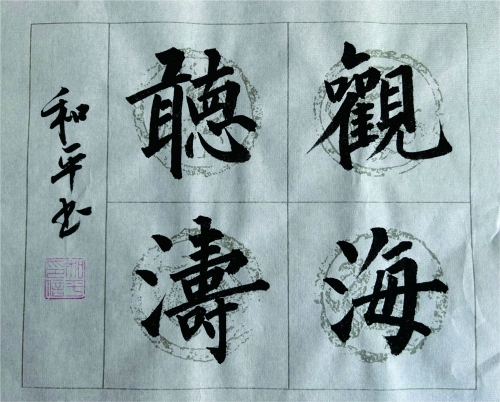 觀海
聽濤
和平书